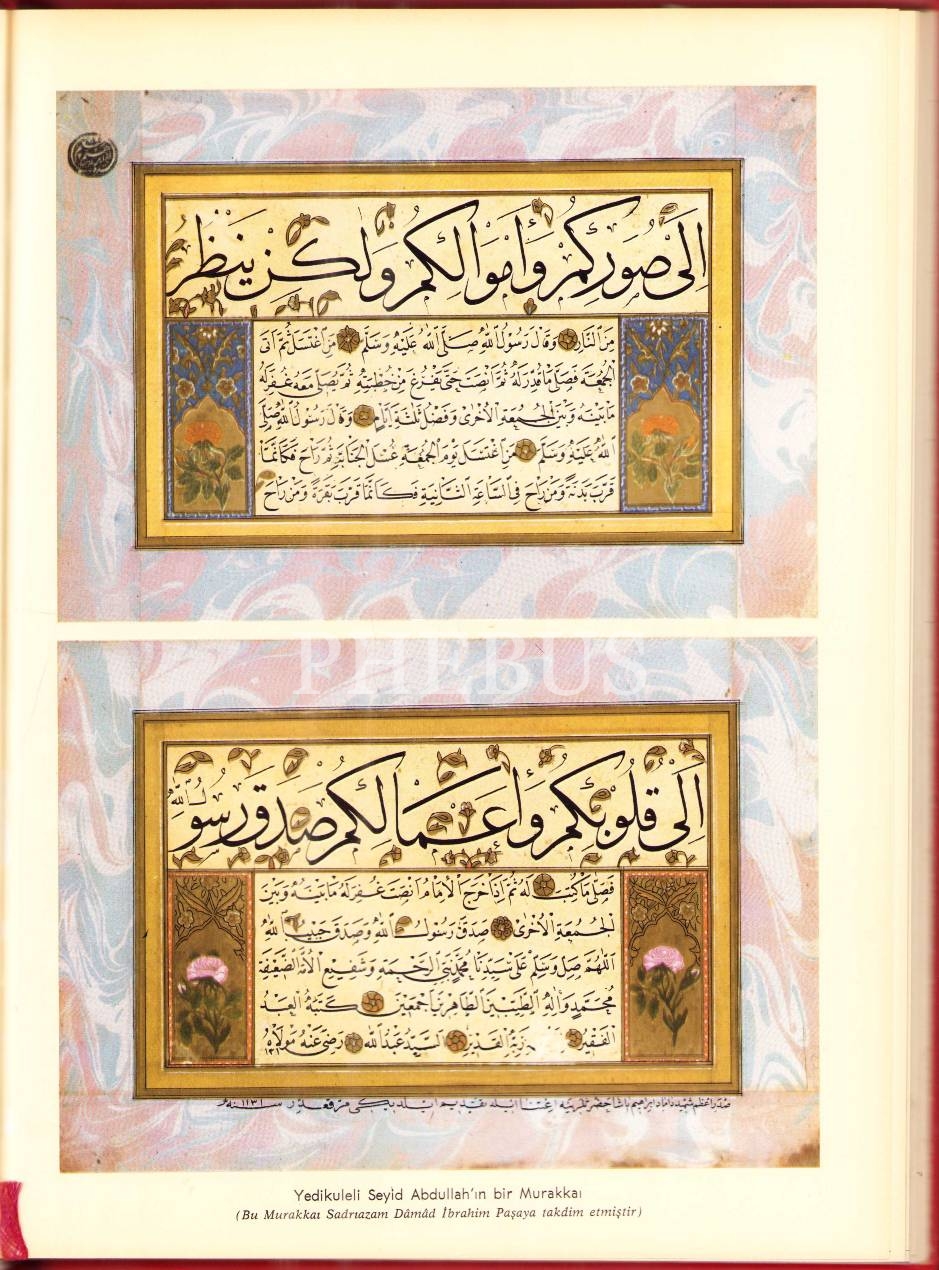 الى صوركم واموالكم ولكن ينظر
من النار وقال رسول الله صلى الله عليه وسلم من اغتسل ثم اتى
الجمعة فصلى ما قدر له ثم انصت حتى يفرغ من خطبته ثم يصلى معه غفر له
ما بينه وبين الجمعة الاخرى وفضل ثلثة ايام وقال رسول الله صلى
الله عليه وسلم من اغتسل يوم الجمعة غسل الجنابة ثم راح فكانما
قرب بدنة ومن راح فى الساعة الثانية فكانما قرب بقرة ومن راح
PHEBUS
الى قلوبكم واعمالكم صدق رسول الله
فصلى ما كتب له ثم اذا خرج الامام انصت غفر له ما بينه وبين
الجمعة الاخرى صدق رسول الله وصدق حبيب الله
اللهم صل وسلم على سيدنا محمد نبى الرحمة وشفيع الامة الضعيفة
محمد واله الطيبين الطاهرين اجمعين كتبه العبد
الفقير السيد عبد الله رضى عنه مولاه
صدر اعظم شهيد داماد ابراهيم پاشا حضرتلرينه تقديم سنه ١١٣١
Yedikuleli Seyid Abdullah'ın bir Murakkaı
(Bu Murakkaı Sadrıazam Dâmâd İbrahim Paşaya takdim etmiştir)